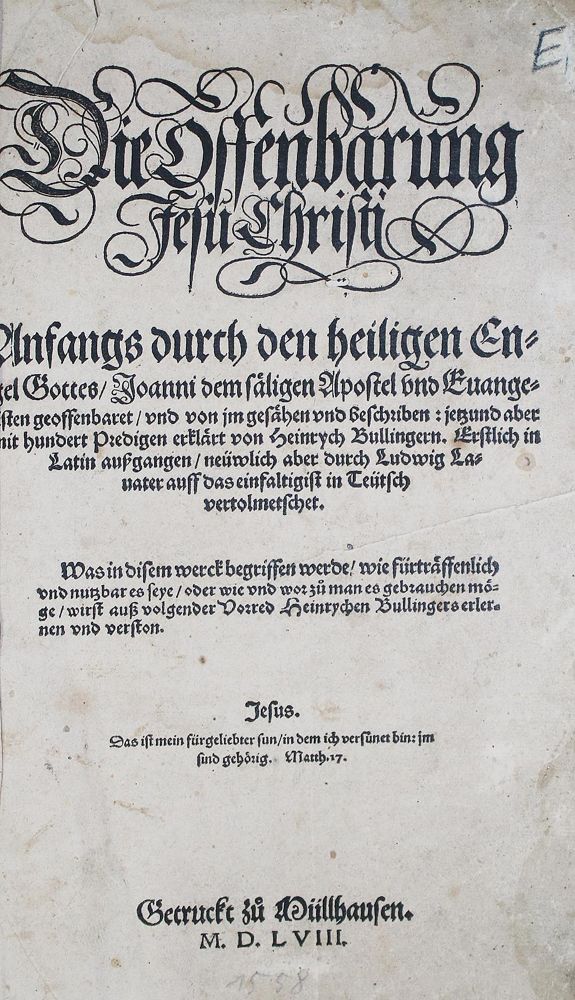 Die Offenbarung
Jesu Christi
Anfangs durch den heiligen En-
gel Gottes/ Joanni dem säligen Apostel vnd Euange-
isten geoffenbaret/ vnd von jm gesähen vnd beschriben: jetzund aber
mit hundert Predigen erklärt von Heinrych Bullingern. Erstlich in
Latin außgangen/ neüwlich aber durch Ludwig La-
uater auff das einfaltigist in Teütsch
vertolmetschet.
Was in disem werck begriffen werde/ wie fürträffenlich
vnd nutzbar es seye/ oder wie vnd worzů man es gebrauchen mö-
ge/ wirst auß volgender Vorred Heinrychen Bullingers erler-
nen vnd verston.
Jesus.
Das ist mein fürgeliebter sun/ in dem ich versünet bin: jm
sind gehörig. Matth. 17.
Getruckt zů Müllhausen.
M. D. LVIII.
1558